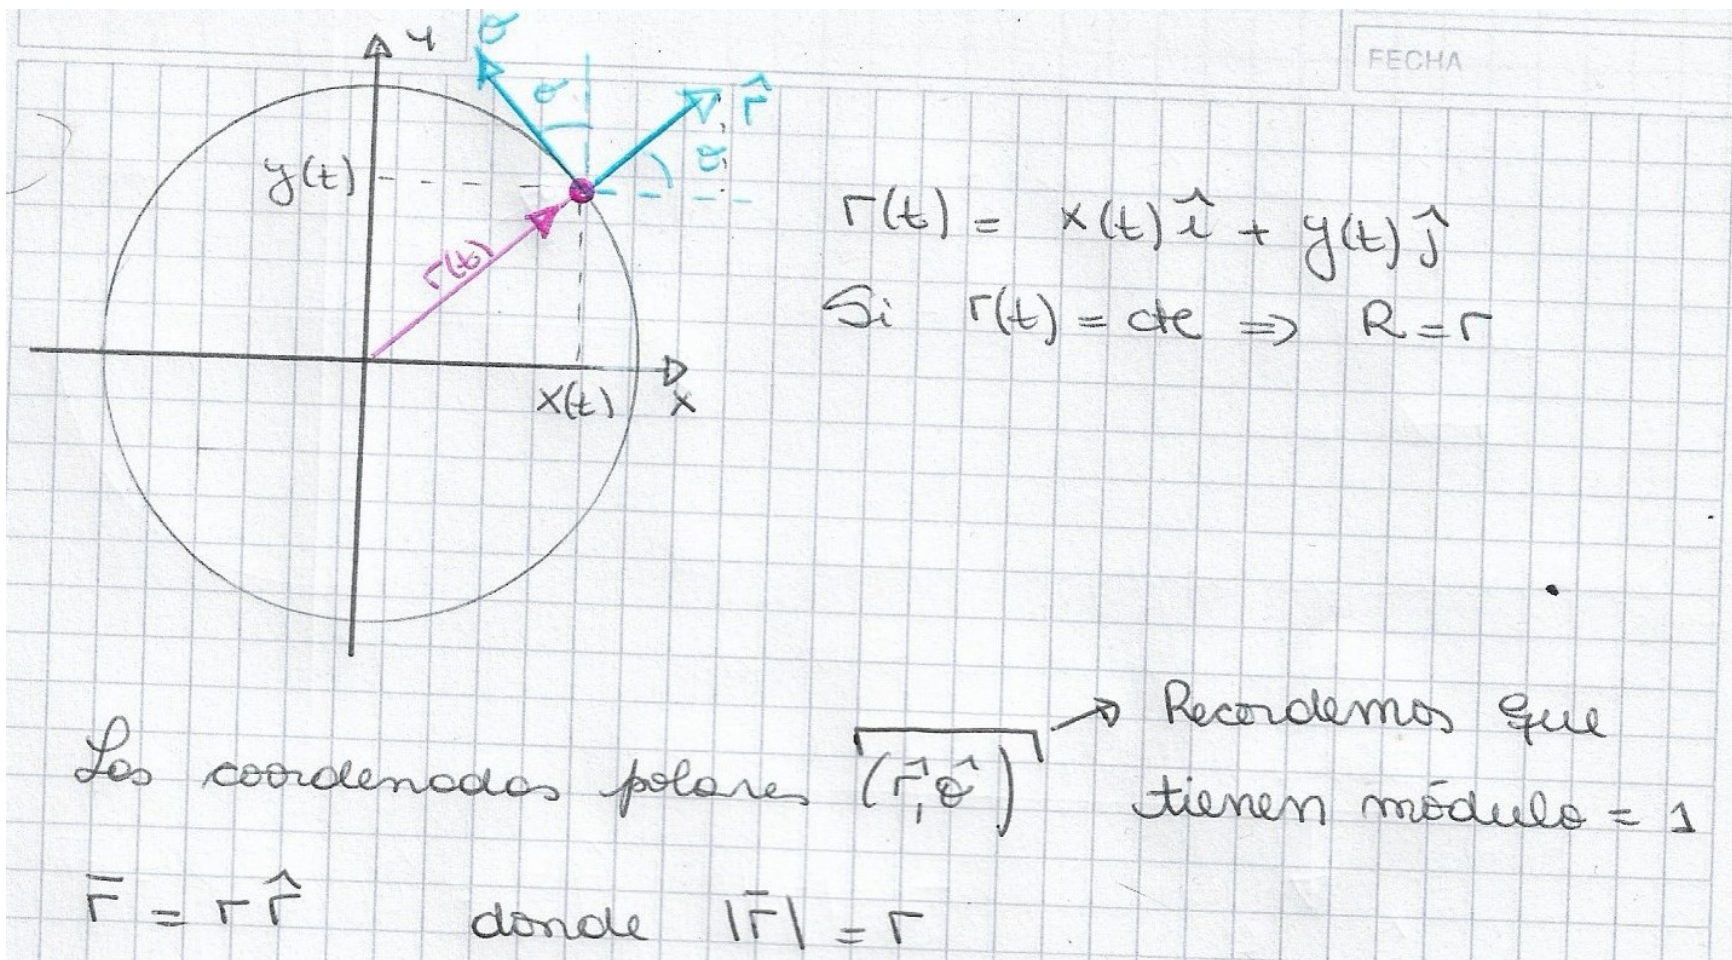 FECHA
y
θ̂
θ
r̂
θ
y(t)
r(t)
x(t)
x
r(t) = x(t) î + y(t) ĵ
Si r(t) = cte ⇒ R = r
Las coordenadas polares (r̂, θ̂) → Recordemos que
tienen módulo = 1
r̅ = r r̂ donde |r̅| = r